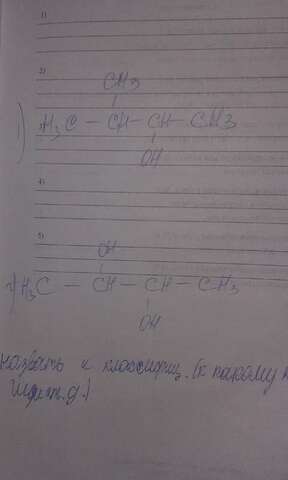 1)
2)
CH3
1) H3C — CH — CH — CH3
OH
4)
5)
OH
2) H3C — CH — CH — CH3
OH
назвать и классифиц. (к какому
и т.д.)